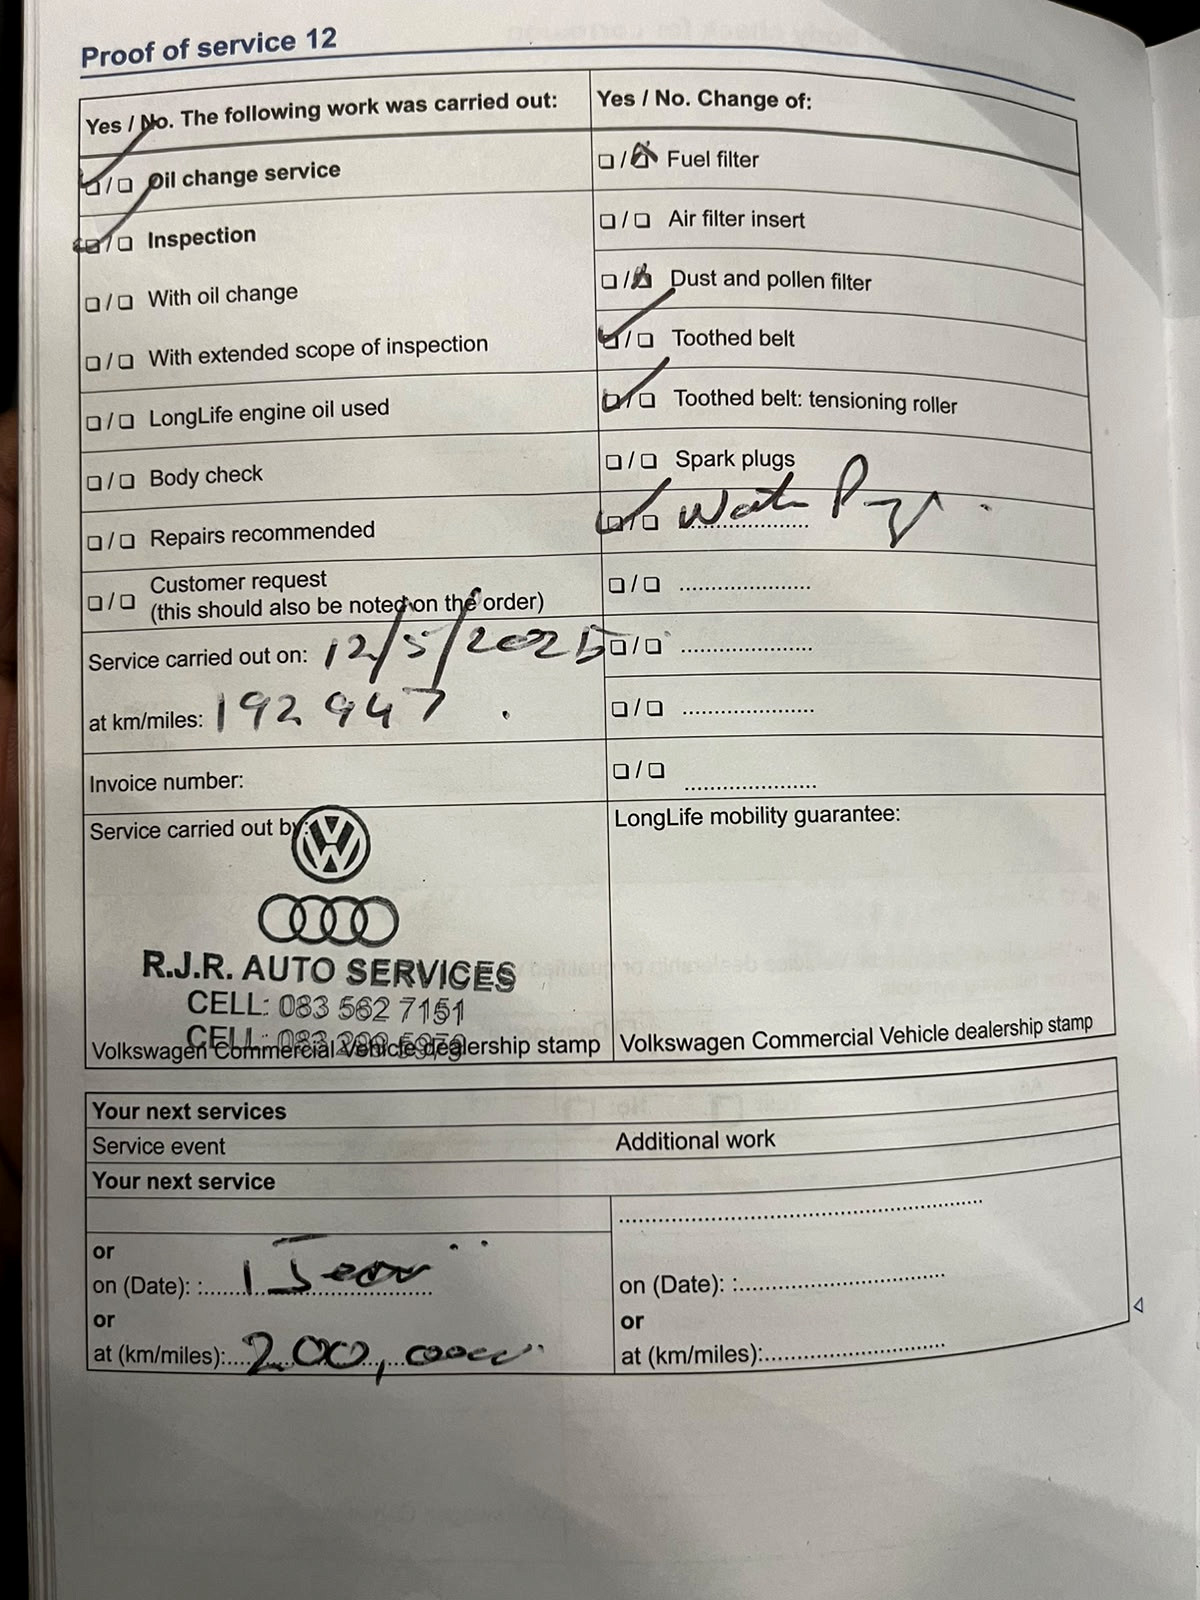 Proof of service 12
Yes / No. The following work was carried out:
Oil change service
Inspection
With oil change
With extended scope of inspection
LongLife engine oil used
Body check
Repairs recommended
Customer request
(this should also be noted on the order)
Service carried out on: 12/5/2025
at km/miles: 192 947
Invoice number:
Service carried out by:
R.J.R. AUTO SERVICES
CELL: 083 562 7151
CELL: 083
Volkswagen Commercial Vehicle dealership stamp
Yes / No. Change of:
Fuel filter
Air filter insert
Dust and pollen filter
Toothed belt
Toothed belt: tensioning roller
Spark plugs
LongLife mobility guarantee:
Volkswagen Commercial Vehicle dealership stamp
Your next services
Service event
Additional work
Your next service
or
on (Date): :
or
at (km/miles): 200,
on (Date): :
or
at (km/miles):